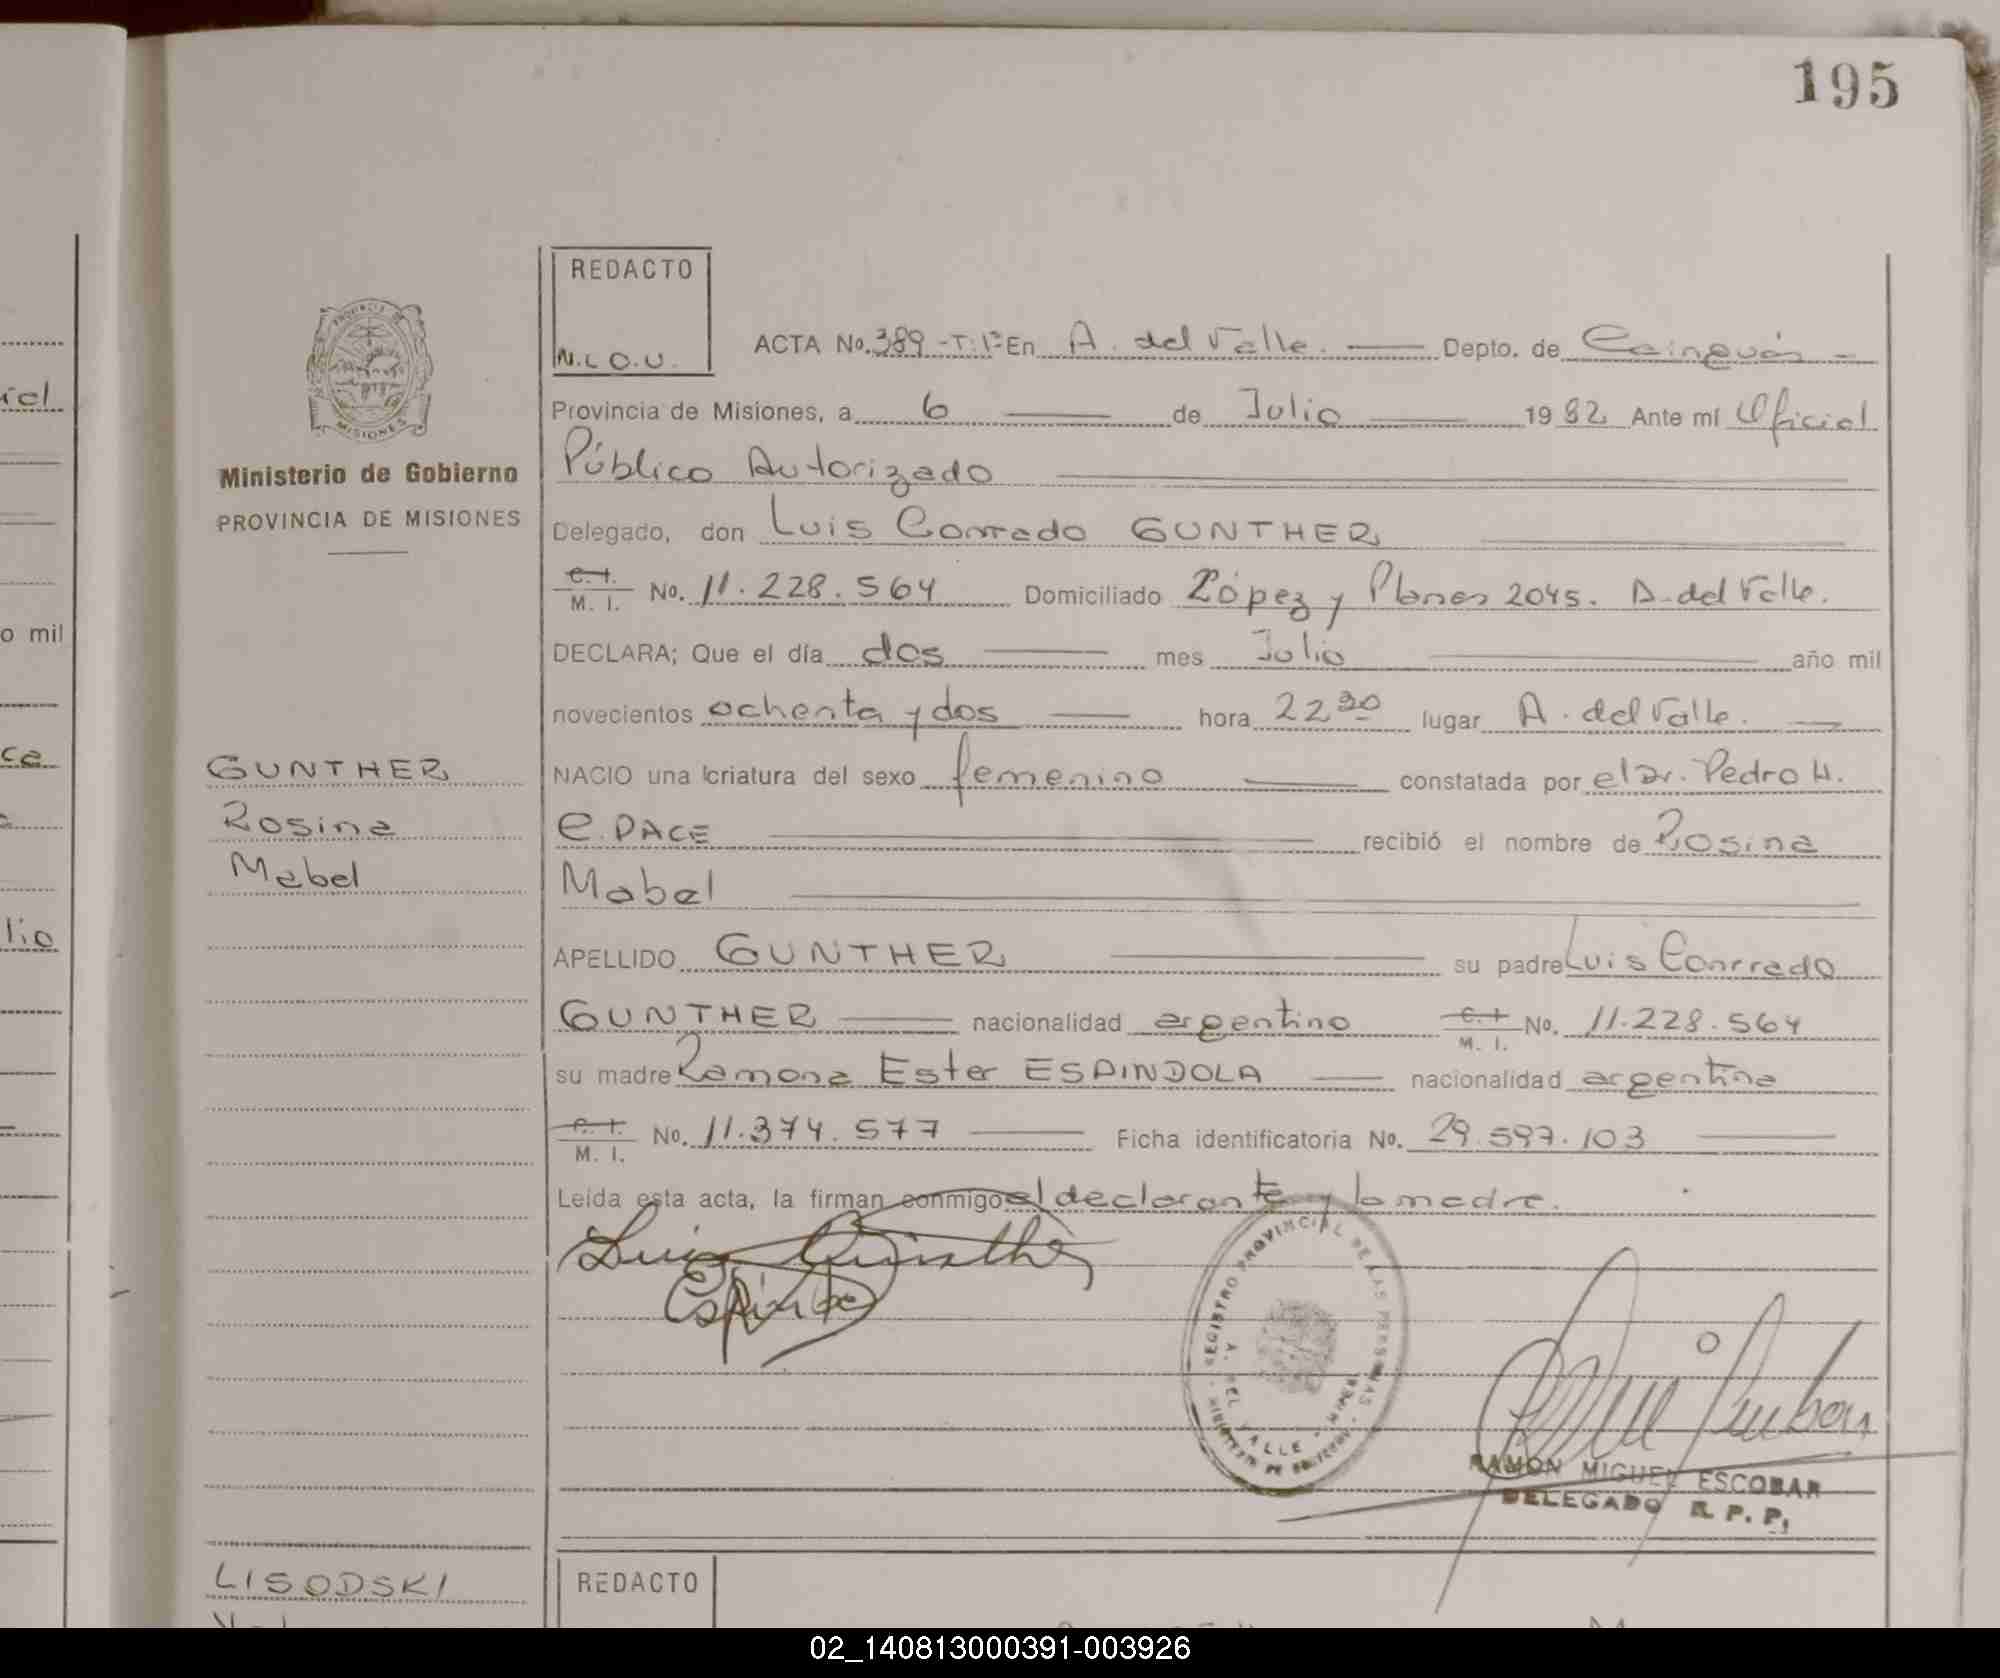 195
REDACTO
N.L.O.U.
MISIONES
Ministerio de Gobierno
PROVINCIA DE MISIONES
ACTA No. 389 - T: 1º En A. del Valle. Depto. de Cainguás
Provincia de Misiones, a 6 de Julio 1982 Ante mí Oficial
Público Autorizado
Delegado, don Luis Conrrado GUNTHER
C. I. M. I. No. 11.228.564 Domiciliado López y Planes 2045. A. del Valle.
DECLARA; Que el día dos mes Julio año mil
novecientos ochenta y dos hora 22 30 lugar A. del Valle.
GUNTHER
Rosina
Mabel
NACIO una criatura del sexo femenino constatada por el Dr. Pedro H.
C. PACE recibió el nombre de Rosina
Mabel
APELLIDO GUNTHER su padre Luis Conrrado
GUNTHER nacionalidad argentino C. I. M. I. No. 11.228.564
su madre Ramona Ester ESPINDOLA nacionalidad argentina
C. I. M. I. No. 11.374.577 Ficha identificatoria No. 29.597.103
Leída esta acta, la firman conmigo el declarante y la madre.
REGISTRO PROVINCIAL DE LAS PERSONAS
A. DEL VALLE
RAMON MIGUEL ESCOBAR
DELEGADO R. P. P.
LISODSKI
REDACTO
iel
o mil
ce
lio
02_140813000391-003926